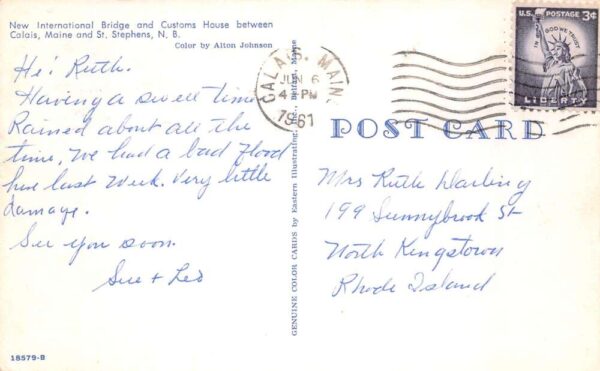 New International Bridge and Customs House between
Calais, Maine and St. Stephens, N. B.
Color by Alton Johnson
Hi! Ruth.
Having a swell time
Rained about all the
time, we had a bad flood
here last week. Very little
damage.
See you soon
Sue + Leo
18579-B
GENUINE COLOR CARDS by Eastern Illustrating, Belfast, Maine
CALAIS, MAINE
JUN 6
4 PM
1961
U.S. POSTAGE 3¢
IN GOD WE TRUST
LIBERTY
POST CARD
Mrs Ruth Darling
199 Sunnybrook St
North Kingstown
Rhode Island